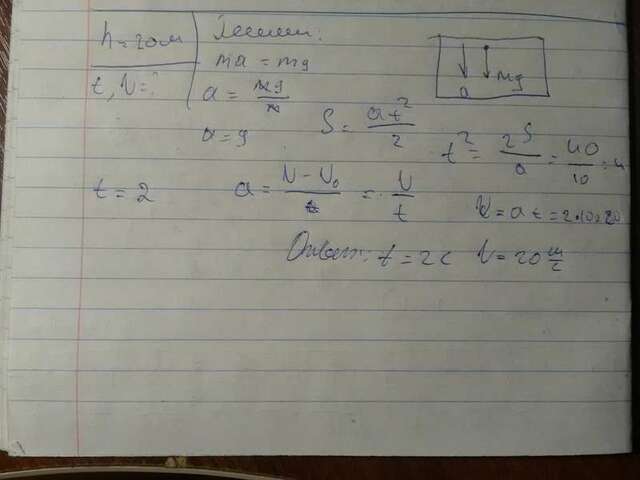 h = 20м
Решение:
t, V = ?
ma = mg
a = mg/m
a = g
a mg
S = at²/2
t² = 2S/a = 40/10 = 4
t = 2
a = V - V₀/t = V/t
V = at = 2·10=20
Ответ: t = 2с V = 20 м/с